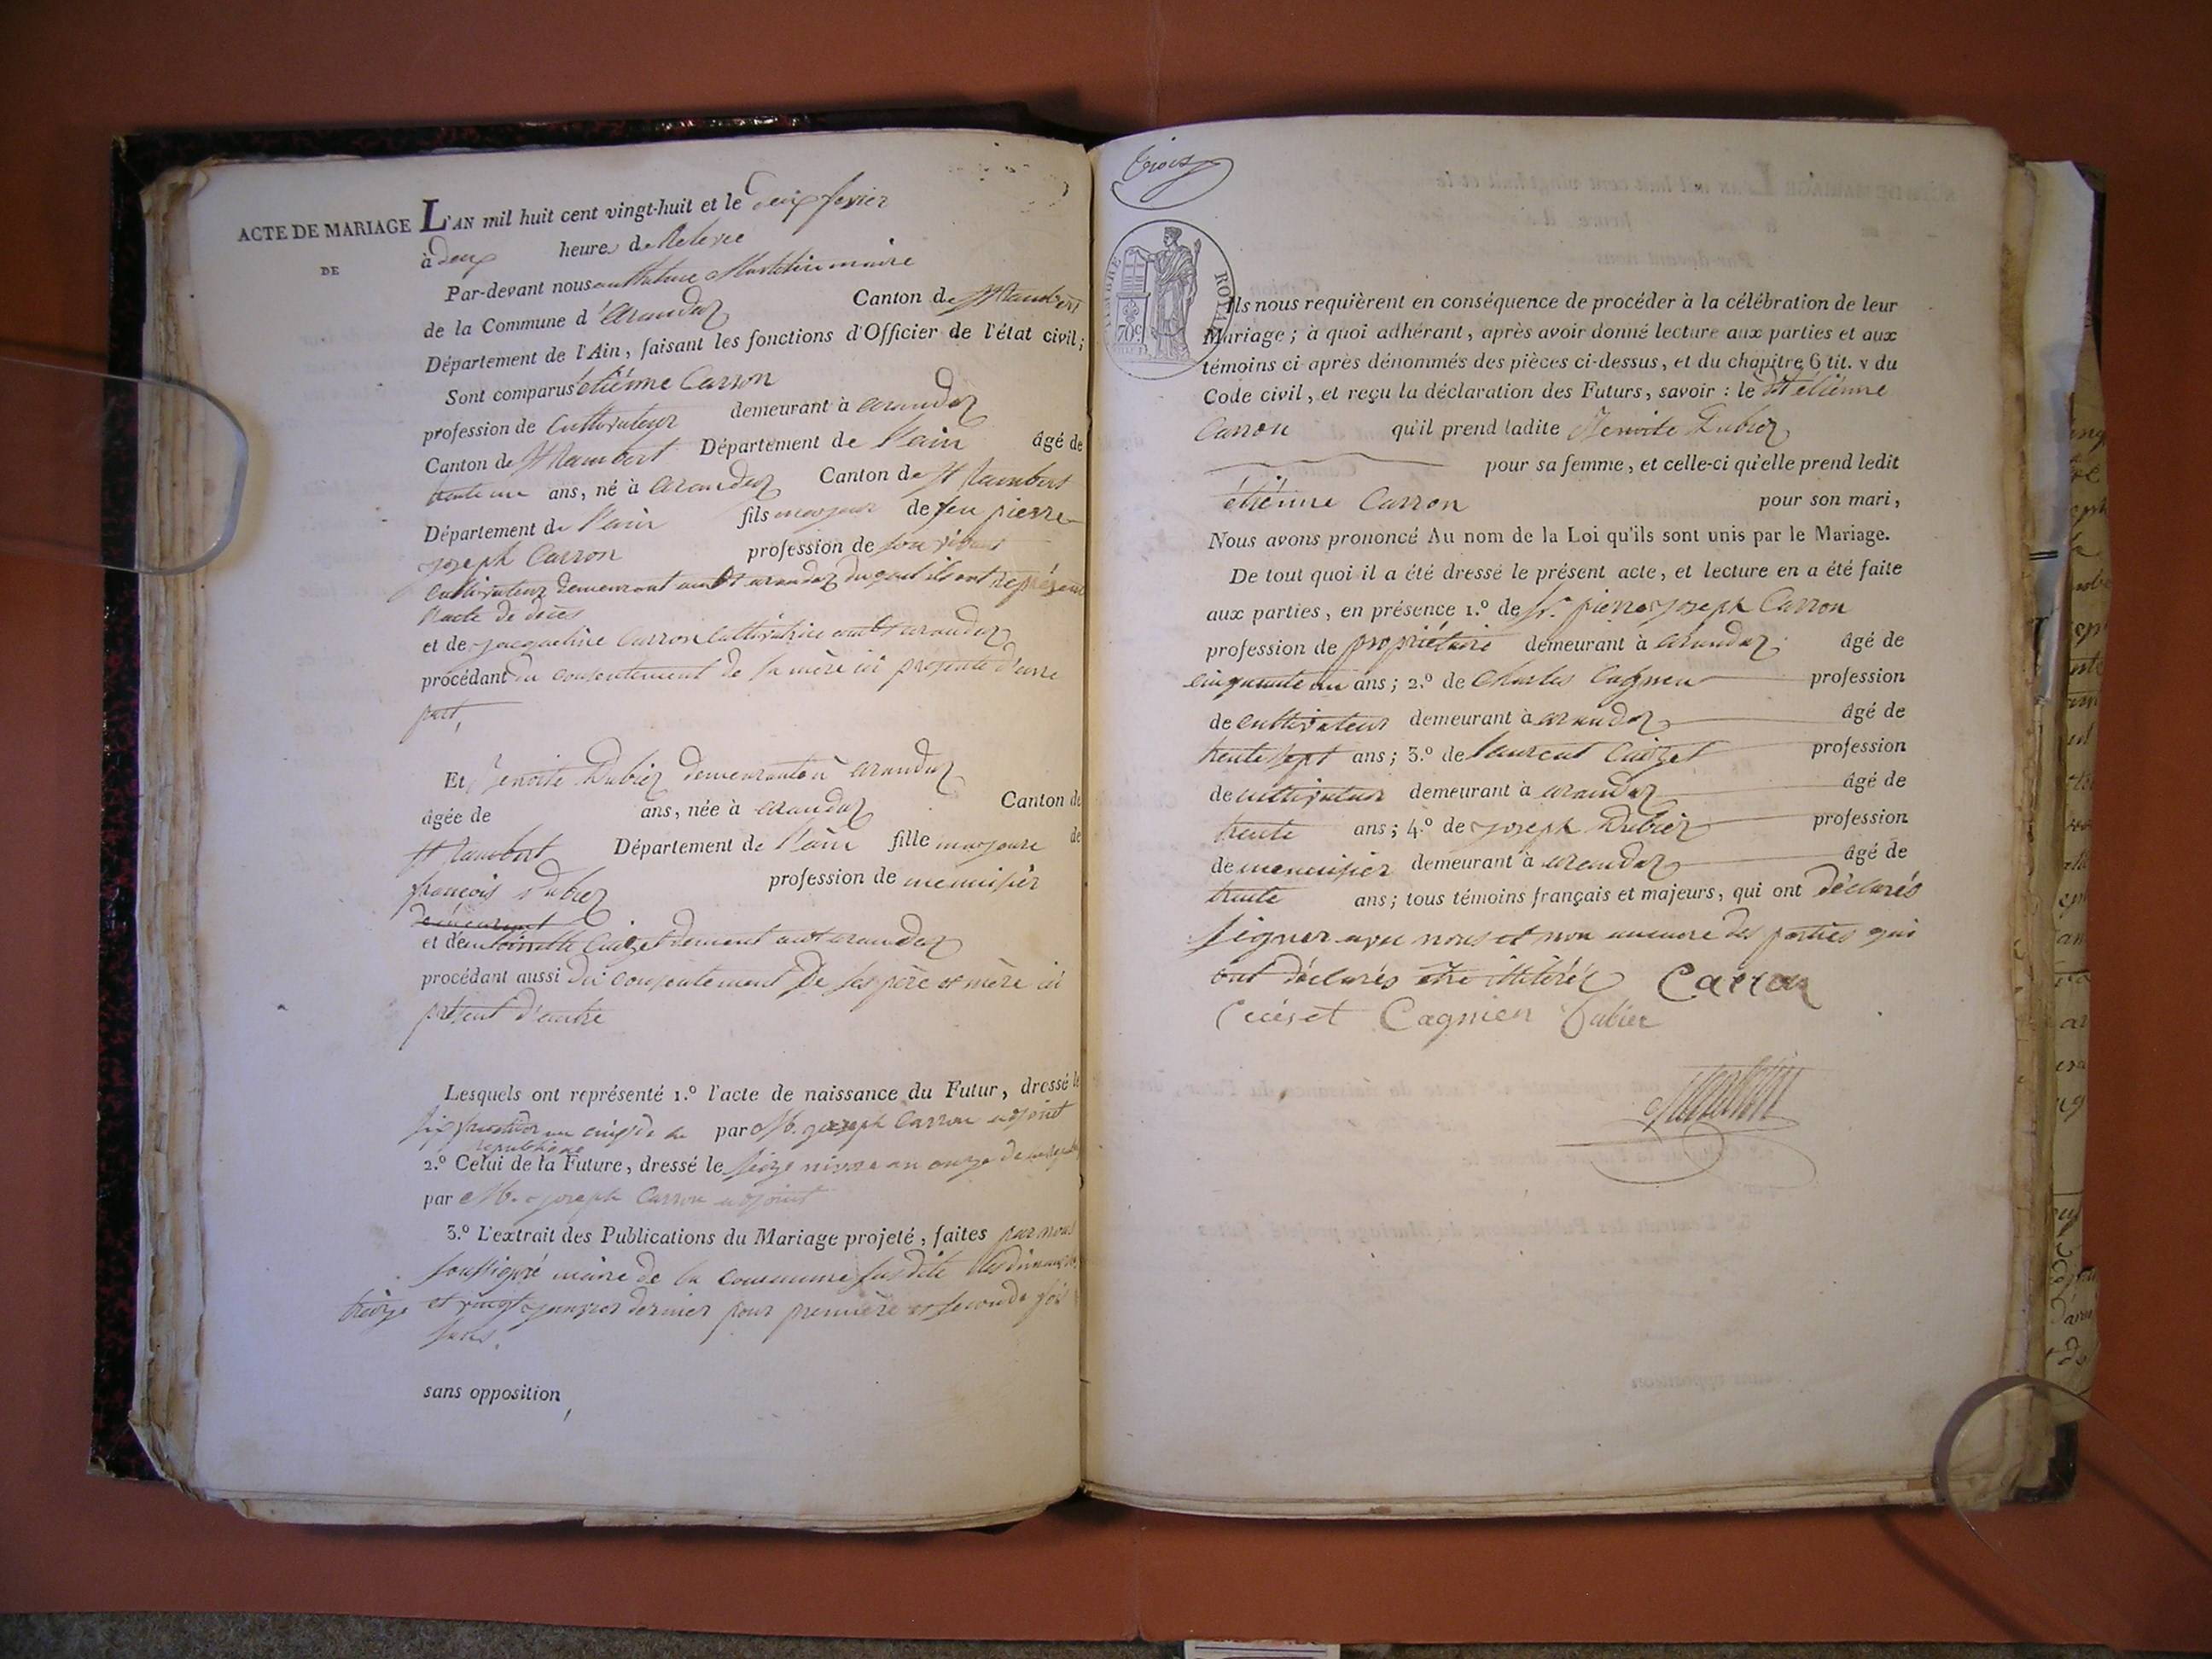 ACTE DE MARIAGE L'AN mil huit cent vingt-huit et le deux fevrier
DE
à deux heures de Relevee
Par-devant nous maire
de la Commune d'arandaz Canton de St Rambert
Département de l'Ain, faisant les fonctions d'Officier de l'état civil;
Sont comparus étiénne Carron
profession de Cultivateur demeurant à arandaz
Canton de St Rambert Département de l'ain âgé de
trente un ans, né à arandaz Canton de St Rambert
Département de l'ain fils majeur de feu pierre
joseph Carron profession de son vivant
Cultivateur demeurant audt arandaz duquel ils ont représenté
l'acte de décés
et de jacqueline Carron Cultivatrice audt arandaz
procédant du consentement de sa mère ici presente d'une
part,
Et Benoite Dubiez demeurante à arandaz
âgée de ans, née à arandaz Canton de
St Rambert Département de l'ain fille majeure de
françois Dubiez profession de menuisier
demeurant
et d'antoinette Cuizet demeurant audt arandaz
procédant aussi du consentement de ses père et mère ici
présent d'autre
Lesquels ont représenté 1.º l'acte de naissance du Futur, dressé le
six an cinq de la par M. joseph Carron adjoint
republique
2.º Celui de la Future, dressé le seize nivose an onze
par M. joseph Carron adjoint
3.º L'extrait des Publications du Mariage projeté, faites par nous
soussigné maire de la commune susdite les dimanches
treize et vingt janvier dernier pour première et seconde fois
sans.
sans opposition,
Trois
TIMBRE ROYAL
70 c.
Ils nous requièrent en conséquence de procéder à la célébration de leur
Mariage; à quoi adhérant, après avoir donné lecture aux parties et aux
témoins ci-après dénommés des pièces ci-dessus, et du chapitre 6 tit. v du
Code civil, et reçu la déclaration des Futurs, savoir: le dt étiénne
Carron qu'il prend ladite Benoite Dubiez
pour sa femme, et celle-ci qu'elle prend ledit
étiénne Carron pour son mari,
Nous avons prononcé Au nom de la Loi qu'ils sont unis par le Mariage.
De tout quoi il a été dressé le présent acte, et lecture en a été faite
aux parties, en présence 1.º de Sr. pierre joseph Carron
profession de propriétaire demeurant à arandaz âgé de
cinquante un ans; 2.º de Charles Cagnieu profession
de cultivateur demeurant à arandaz âgé de
trente sept ans; 3.º de laurent Cuizet profession
de cultivateur demeurant à arandaz âgé de
trente ans; 4.º de joseph Dubiez profession
de menuisier demeurant à arandaz âgé de
trente ans; tous témoins français et majeurs, qui ont déclarés
signer avec nous et non aucune des parties qui
ont déclarés être illitérés Carron
Cuiset Cagnieu Dubiez